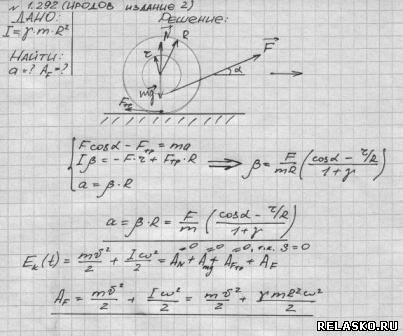 № 1.292 (ИРОДОВ издание 2)
ДАНО:
I=γ·m·R²
НАЙТИ:
a=? A_F=?
Решение:
N R
τ
F
α
mg
Fтр
Fcosα - Fтр = ma
Iβ = -F·τ + Fтр·R
a = β·R
⟹ β = F/mR (cosα - τ/R / 1+γ)
a = β·R = F/m (cosα - τ/R / 1+γ)
E_k(t) = mv²/2 + Iω²/2 = A_N + A_mg + A_Fтр + A_F
=0 =0 =0, т.к. S=0
A_F = mv²/2 + Iω²/2 = mv²/2 + γmR²ω²/2
RELASKO.RU